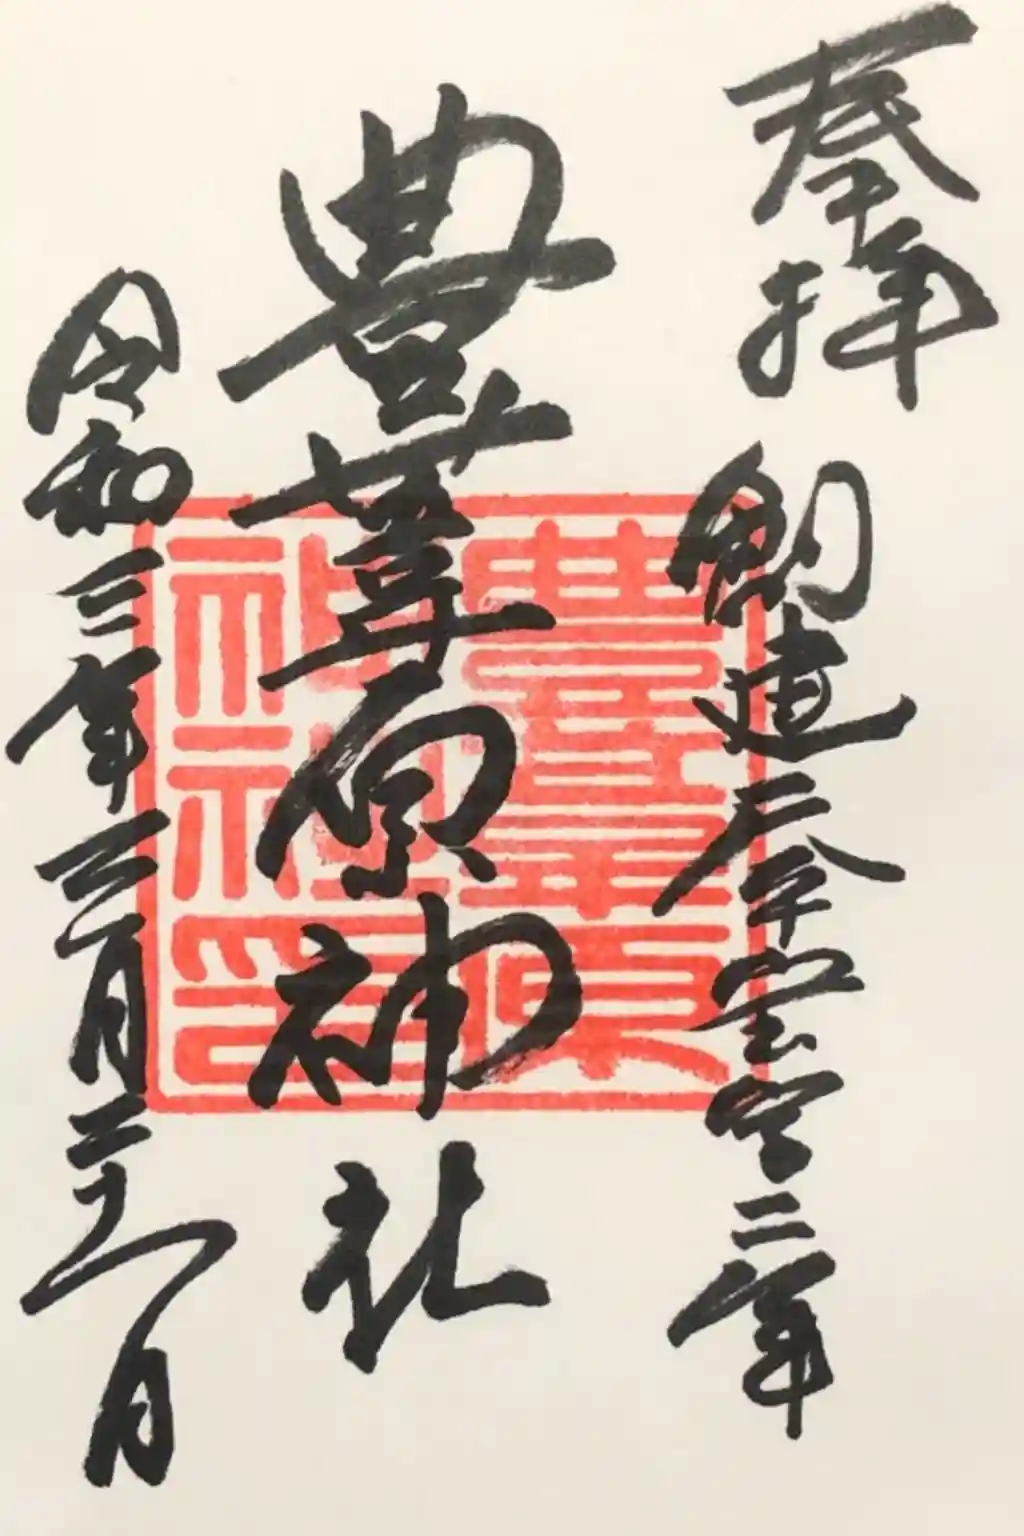 奉拝
創建天平宝字二年
豊葦原神社
令和三年三月二十日
豊葦原
神社印